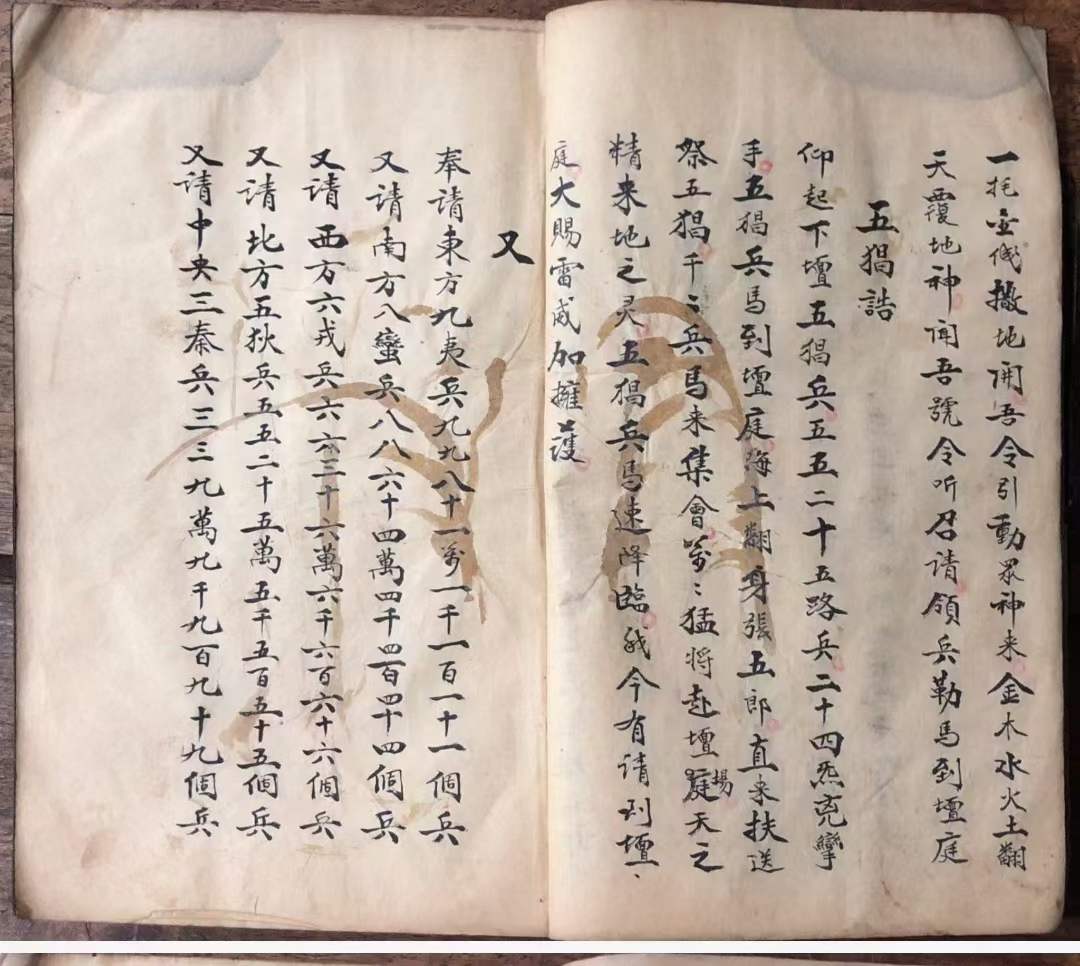 一托金儀撒地開吾令引動眾神来金木水火土翻
天覆地神聞吾號令听召请領兵勒馬到壇庭
五猖誥
仰起下壇五猖兵五五二十五路兵二十四炁亮攣
手五猖兵馬到壇庭海上翻身張五郎直来扶送
祭五猖千〻兵馬来集會萬〻猛将赴壇庭場天之
精来地之灵五猖兵馬速降臨我今有請到壇、
庭大賜雷威加擁護
又
奉請東方九夷兵九九八十一萬一千一百一十一個兵
又請南方八蠻兵八八六十四萬四千四百四十四個兵
又請西方六戎兵六六三十六萬六千六百六十六個兵
又請北方五狄兵五五二十五萬五千五百五十五個兵
又請中央三秦兵三三九萬九千九百九十九個兵